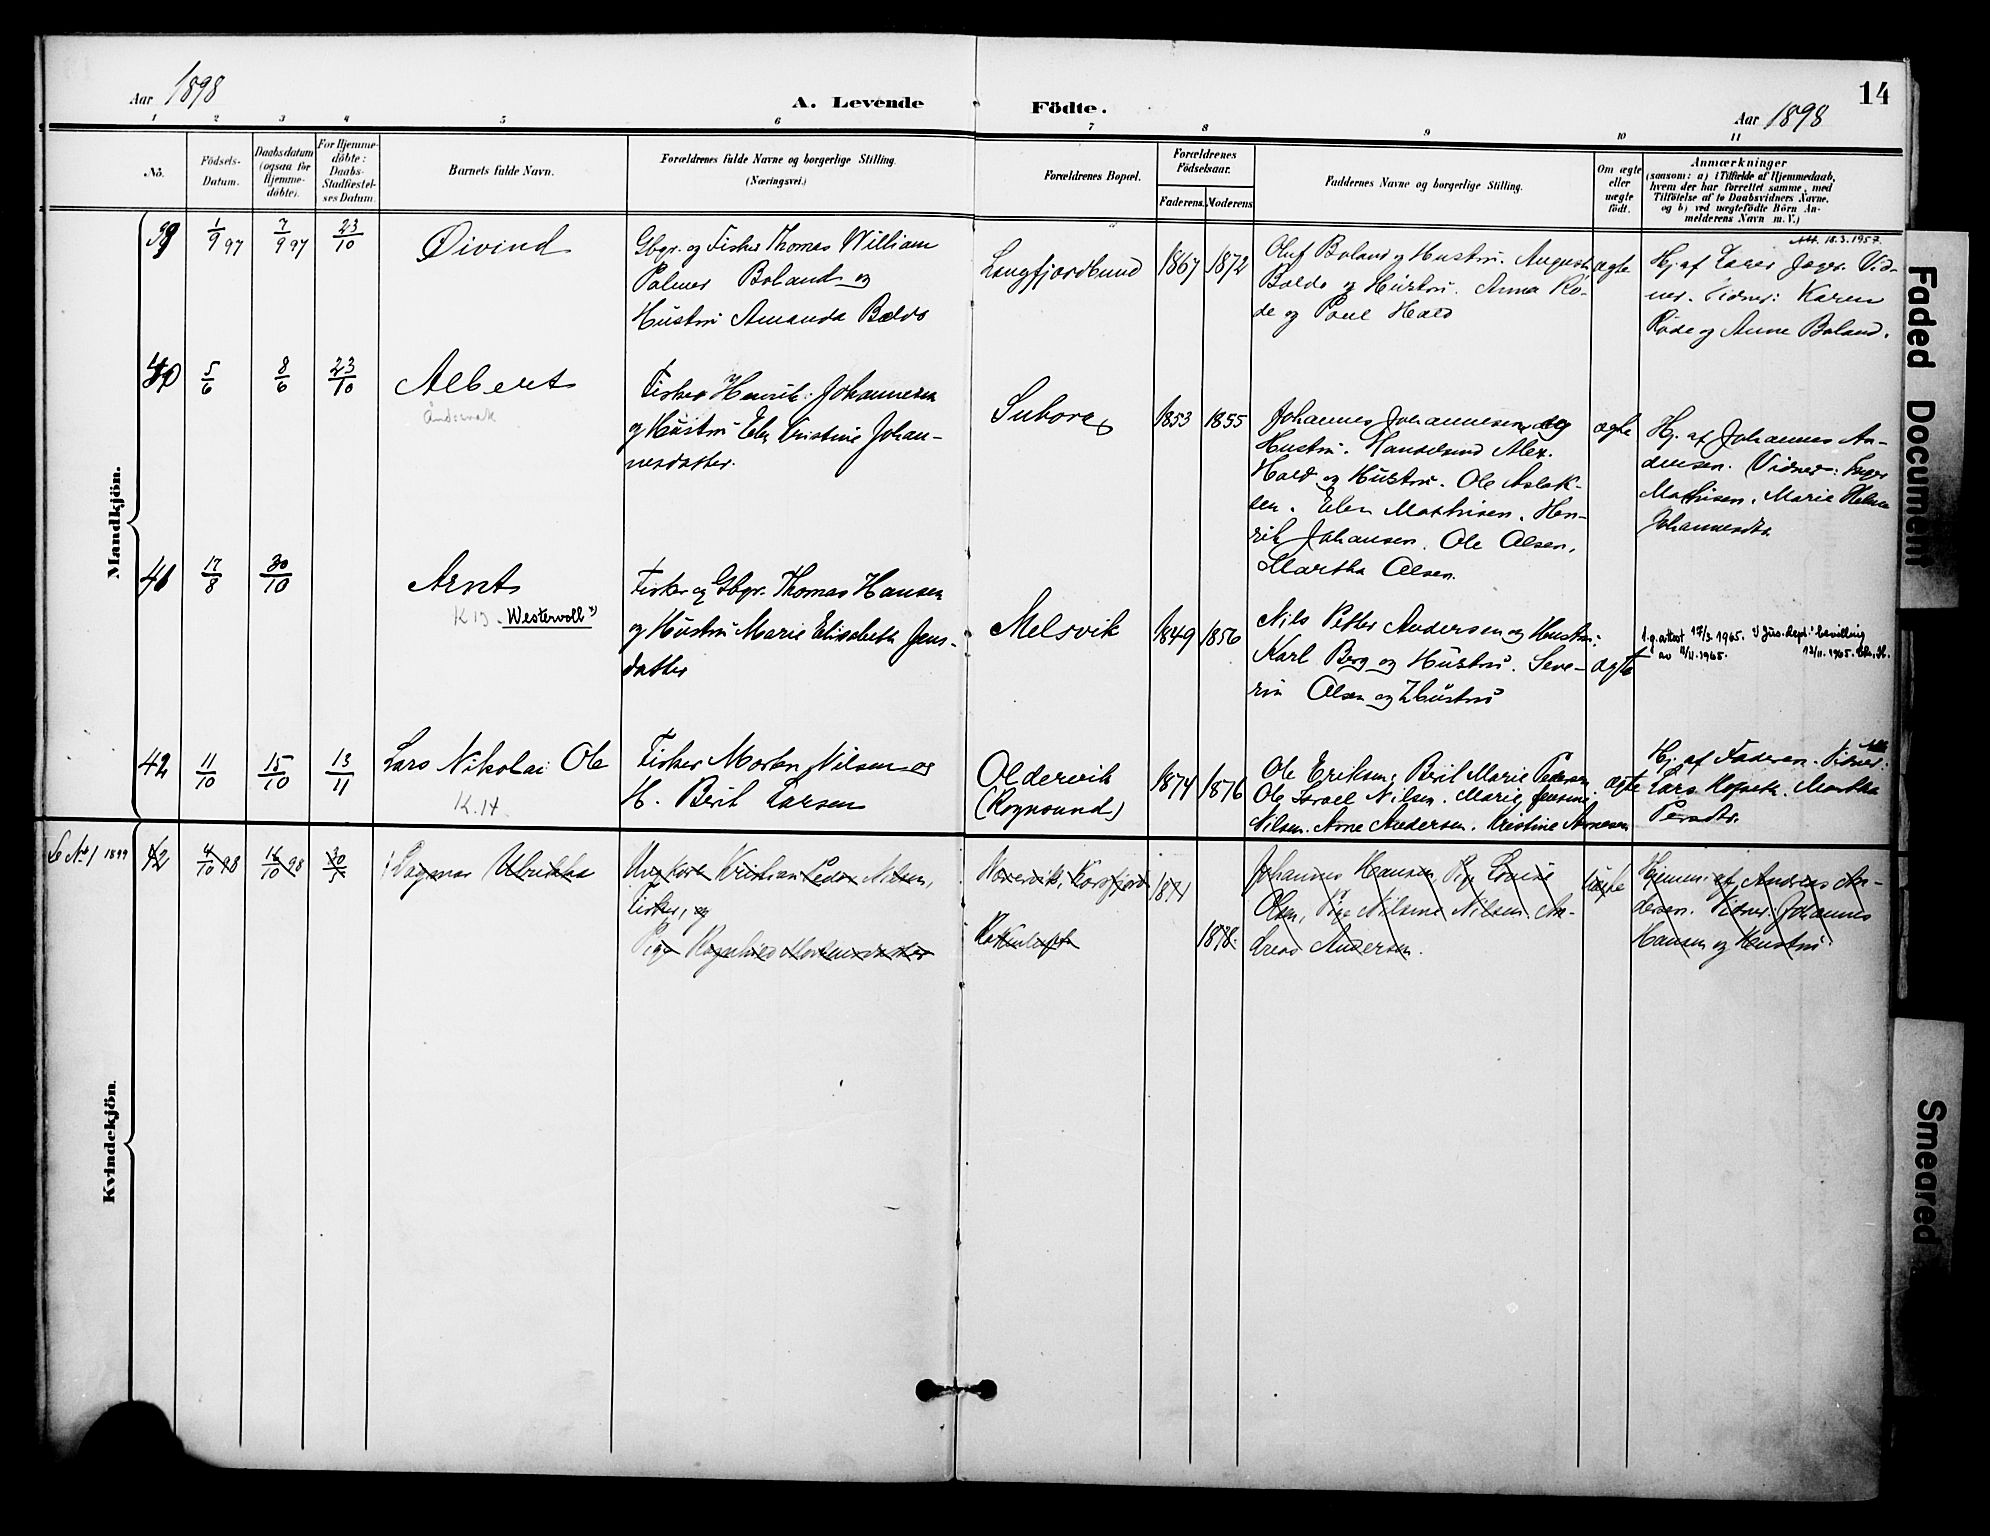 Aar 1898
A. Levende Födte.
14
Aar 1898
1 2 3 4 5 6 7 8 9 10 11
No.
Födsels-
Datum.
Daabsdatum
(ogsaa for
Hjemme-
döbte).
For Hjemme-
döbte:
Daabs-
Stadfæstel-
ses Datum.
Barnets fulde Navn.
Forældrenes fulde Navne og borgerlige Stilling.
(Næringsvei.)
Forældrenes Bopæl.
Forældrenes
Födselsaar.
Faderens. Moderens
Faddernes Navne og borgerlige Stilling.
Om ægte
eller
uægte
födt.
Anmærkninger
(saasom: a) i Tilfælde af Hjemmedaab,
hvem der har forrettet samme, med
Tilföielse af to Daabsvidners Navne,
og b) ved uægtefödte Börn An-
melderens Navn m. V.)
Mandkjön.
39
1/9 97
7/9 97
23/10
Øivind
Gbgr. og Fisker Thomas William
Palmer Boland og
Hustru Amanda Baldo
Langfjordbund
1867 1872
Oluf Boland og Hustru. August
Baldo og Hustru. Anna Rö-
de og Poul Hald
ægte
18.3.1957
Hj. af Jager. Vid-
ner. Vidner: Karen
Röde og Anne Boland.
40
5/6
8/6
23/10
Albert
Åndssvak
Fisker Henrik Johannesen
og Hustru Elen Kristine Johan-
nesdatter.
1853 1855
Johannes Johannesen og
Hustru. Handelsmd Alex.
Hald og Hustru. Ole Aslak-
sen. Elen Mathisen. Hen-
rik Johansen. Ole Olsen,
Martha Olsen.
ægte
Hj. af Johannes An-
dersen. Vidner: Inger
Mathisen, Marie Helene
Johannesdtr.
41
17/8
30/10
Arnt
K 13. Westervoll 2)
Fisker og Gbgr. Thomas Hansen
og Hustru Marie Elisabeth Jens-
datter
Melsvik
1849 1856
Nils Petter Andersen og Hustru.
Karl Berg og Hustru. Seve-
rin Olsen og Hustru
ægte
1. g. attest 17/3 1965. 2) Jus. dept.' bevilling
av 11/11. 1965. 12/11. 1965.
42
11/10
15/10
13/11
Lars Nikolai Ole
K. 14
Fisker Morten Nilsen og
H. Bril Larsen
Oldervik
(Rognsund)
1874 1876
Ole Eriksen, Bril Marie Pedersen
Ole Israel Nilsen. Marie Jensine
Nilsen. Arne Andersen. Kristine Arnesen
ægte
Hj. af Faderen. Vidner:
Lars Martha
Persdtr.
Kvindekjön.
Se No 1 1899
42
4/10 98
16/10 98
30/5
Dagmar Ulrikka
Ungkarl Kristian Peder Nilsen,
Fisker, og
Pige Ragnhild Mortensdatter
Korsfjord
1871
1878.
Johannes Hansen, Pige Lovise
Olsen, Pige Nilsine Nilsen. An-
dreas Andersen.
uægte
Hjemm. af Andreas An-
dersen. Vidner: Johannes
Hansen og Hustru
Faded Document
Smeared